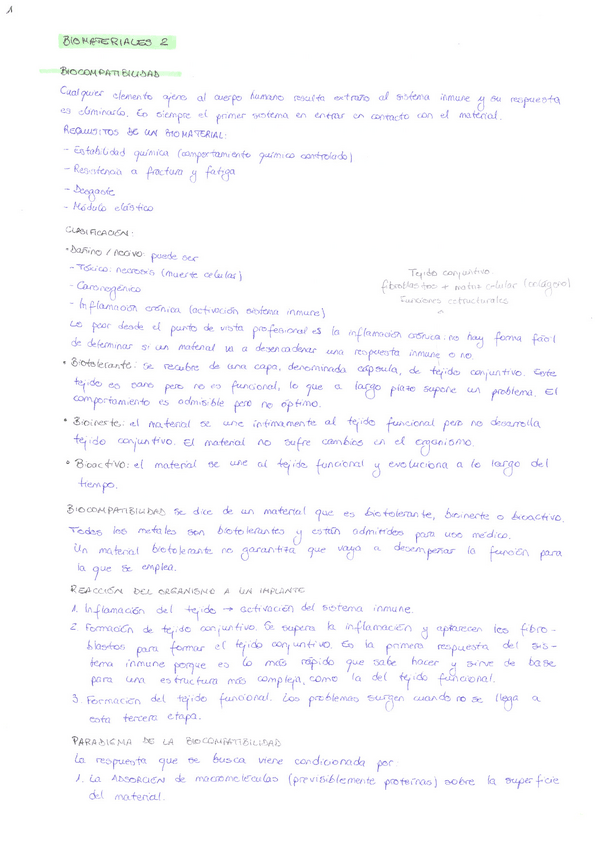 1
BIOMATERIALES 2
BIOCOMPATIBILIDAD
Cualquier elemento ajeno al cuerpo humano resulta extraño al sistema inmune y su respuesta
es eliminarlo. Es siempre el primer sistema en entrar en contacto con el material.
REQUISITOS DE UN BIOMATERIAL:
- Estabilidad química (comportamiento químico controlado)
- Resistencia a fractura y fatiga
- Desgaste
- Módulo elástico
CLASIFICACIÓN:
• Dañino / Activo: puede ser
- Tóxico: necrosis (muerte celular)
- Carcinogénico
- Inflamación crónica (activación sistema inmune)
Tejido conjuntivo
fibroblastos + matriz celular (colágeno)
Funciones estructurales
Lo peor desde el punto de vista profesional es la inflamación crónica: no hay forma fácil
de determinar si un material va a desencadenar una respuesta inmune o no.
• Biotolerante: se recubre de una capa, denominada cápsula, de tejido conjuntivo. Este
tejido es sano pero no es funcional, lo que a largo plazo supone un problema. El
comportamiento es admisible pero no óptimo.
• Bioinerte: el material se une íntimamente al tejido funcional pero no desarrolla
tejido conjuntivo. El material no sufre cambios en el organismo.
• Bioactivo: el material se une al tejido funcional y evoluciona a lo largo del
tiempo.
BIOCOMPATIBILIDAD se dice de un material que es biotolerante, bioinerte o bioactivo.
Todos los metales son biotolerantes y están admitidos para uso médico.
Un material biotolerante no garantiza que vaya a desempeñar la función para
la que se emplea.
REACCIÓN DEL ORGANISMO A UN IMPLANTE
1. Inflamación del tejido → activación del sistema inmune.
2. Formación de tejido conjuntivo. Se supera la inflamación y aparecen los fibro-
blastos para formar el tejido conjuntivo. Es la primera respuesta del sis-
tema inmune porque es lo más rápido que sabe hacer y sirve de base
para una estructura más compleja, como la del tejido funcional.
3. Formación del tejido funcional. Los problemas surgen cuando no se llega a
esta tercera etapa.
PARADIGMA DE LA BIOCOMPATIBILIDAD
La respuesta que se busca viene condicionada por:
1. La ADSORCIÓN de macromoléculas (previsiblemente proteínas) sobre la superficie
del material.